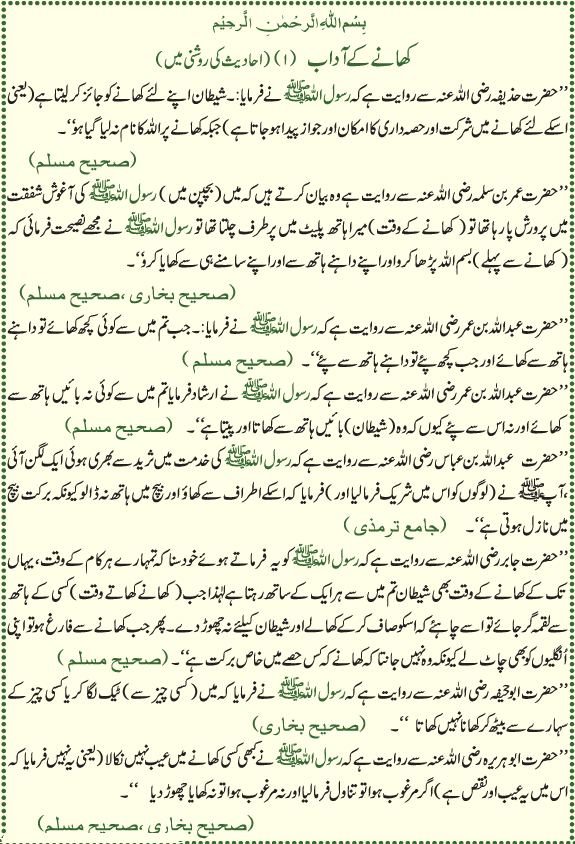 بِسْمِ اللهِ الرَّحْمٰنِ الرَّحِيْمِ
کھانے کے آداب (۱) (احادیث کی روشنی میں)
’’حضرت حذیفہ رضی اللہ عنہ سے روایت ہے کہ رسول اللہ ﷺ نے فرمایا:۔ شیطان اپنے لئے کھانے کو جائز کر لیتا ہے (یعنی
اسکے لئے کھانے میں شرکت اور حصہ داری کا امکان اور جواز پیدا ہو جاتا ہے) جبکہ کھانے پر اللہ کا نام نہ لیا گیا ہو‘‘۔
(صحیح مسلم)
’’حضرت عمر بن سلمہ رضی اللہ عنہ سے روایت ہے وہ بیان کرتے ہیں کہ میں (بچپن میں) رسول اللہ ﷺ کی آغوش شفقت
میں پرورش پا رہا تھا تو (کھانے کے وقت) میرا ہاتھ پلیٹ میں ہر طرف چلتا تھا تو رسول اللہ ﷺ نے مجھے نصیحت فرمائی کہ
(کھانے سے پہلے) بسم اللہ پڑھا کرو اور اپنے داہنے ہاتھ سے اور اپنے سامنے ہی سے کھایا کرو‘‘۔
(صحیح بخاری ،صحیح مسلم)
’’حضرت عبداللہ بن عمر رضی اللہ عنہ سے روایت ہے کہ رسول اللہ ﷺ نے فرمایا:۔ جب تم میں سے کوئی کچھ کھائے تو داہنے
ہاتھ سے کھائے اور جب کچھ پئے تو داہنے ہاتھ سے پئے‘‘۔ (صحیح مسلم)
’’حضرت عبداللہ بن عمر رضی اللہ عنہ سے روایت ہے کہ رسول اللہ ﷺ نے ارشاد فرمایا تم میں سے کوئی نہ بائیں ہاتھ سے
کھائے اور نہ اس سے پئے کیوں کہ وہ (شیطان) بائیں ہاتھ سے کھاتا اور پیتا ہے‘‘۔ (صحیح مسلم)
’’حضرت عبداللہ بن عباس رضی اللہ عنہ سے روایت ہے کہ رسول اللہ ﷺ کی خدمت میں ثرید سے بھری ہوئی ایک لگن آئی
،آپ ﷺ نے (لوگوں کو اس میں شریک فرما لیا اور) فرمایا کہ اسکے اطراف سے کھاؤ اور بیچ میں ہاتھ نہ ڈالو کیونکہ برکت بیچ
میں نازل ہوتی ہے‘‘۔ (جامع ترمذی)
’’حضرت جابر رضی اللہ عنہ سے روایت ہے کہ رسول اللہ ﷺ کو یہ فرماتے ہوئے خود سنا کہ تمہارے ہر کام کے وقت، یہاں
تک کے کھانے کے وقت بھی شیطان تم میں سے ہر ایک کے ساتھ رہتا ہے لہٰذا جب (کھانے کھاتے وقت) کسی کے ہاتھ
سے لقمہ گر جائے تو اسے چاہئے کہ اسکو صاف کر کے کھا لے اور شیطان کیلئے نہ چھوڑ دے۔ پھر جب کھانے سے فارغ ہو تو اپنی
اُنگلیوں کو بھی چاٹ لے کیونکہ وہ نہیں جانتا کہ کھانے کہ کس حصے میں خاص برکت ہے‘‘۔ (صحیح مسلم)
’’حضرت ابو جحیفہ رضی اللہ عنہ سے روایت ہے کہ رسول اللہ ﷺ نے فرمایا کہ میں (کسی چیز سے) ٹیک لگا کر یا کسی چیز کے
سہارے سے بیٹھ کر کھانا نہیں کھاتا ‘‘۔ (صحیح بخاری)
’’حضرت ابو ہریرہ رضی اللہ عنہ سے روایت ہے کہ رسول اللہ ﷺ نے کبھی کسی کھانے میں عیب نہیں نکالا (یعنی یہ نہیں فرمایا کہ
اس میں یہ عیب اور نقص ہے) اگر مرغوب ہوا تو تناول فرمالیا اور نہ مرغوب ہوا تو نہ کھایا چھوڑ دیا ‘‘۔
(صحیح بخاری ،صحیح مسلم)